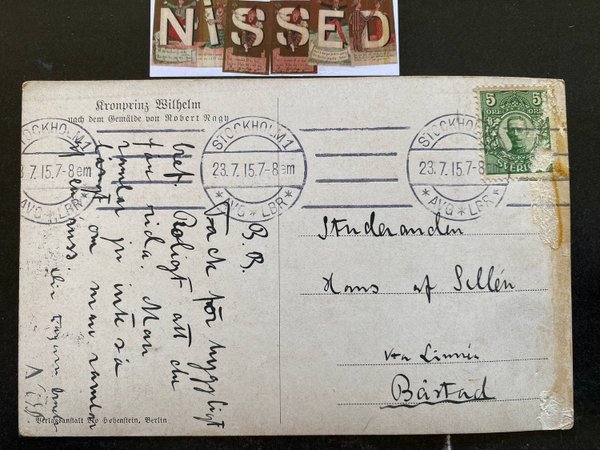 NISSED
Kronprinz Wilhelm
nach dem Gemälde von Robert Nagy
STOCKHOLM 1
7.15.7-8 em
AVG * LBR *
STOCKHOLM 1
23.7.15.7-8 em
* AVG * LBR *
STOCKHOLM 1
23.7.15.7-8
* AVG * LBR
5 5
ÖRE ÖRE
SVERIGE
B.B.
Tack för hyggligt
vet. Roligt att du
kan rida. Man
ramlar ju inte så
långt om man ramlar
Studeranden
Hans af Sillén
Båstad
Verlagsanstalt Hohenstein, Berlin